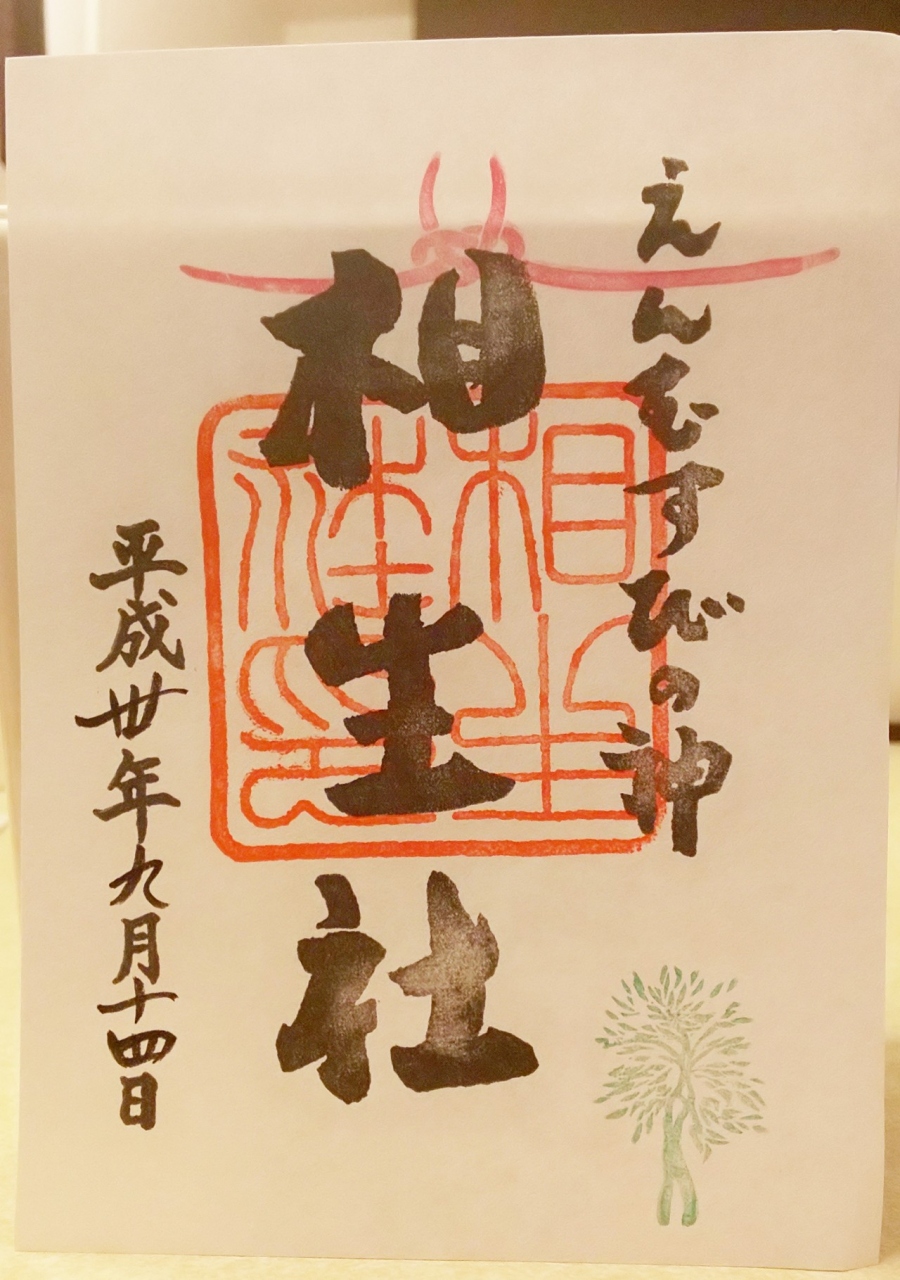 えんむすびの神
相生社
平成丗年九月十四日